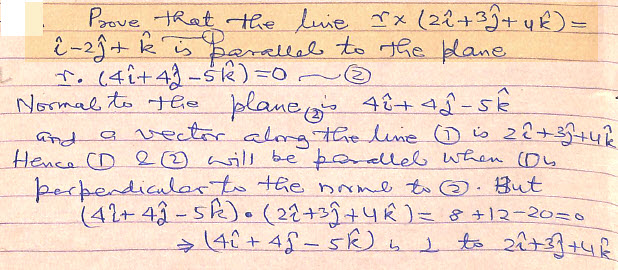 Prove that the line r × (2î+3ĵ+4k̂) =
î-2ĵ+ k̂ is parallel to the plane
r. (4î+4ĵ-5k̂)=0 — ②
Normal to the plane ② is 4î+4ĵ-5k̂
and a vector along the line ① is 2î+3ĵ+4k̂
Hence ① & ② will be parallel when ① is
perpendicular to the normal to ②. But
(4î+4ĵ-5k̂)•(2î+3ĵ+4k̂)= 8+12-20=0
⇒ (4î+4ĵ-5k̂) is ⊥ to 2î+3ĵ+4k̂